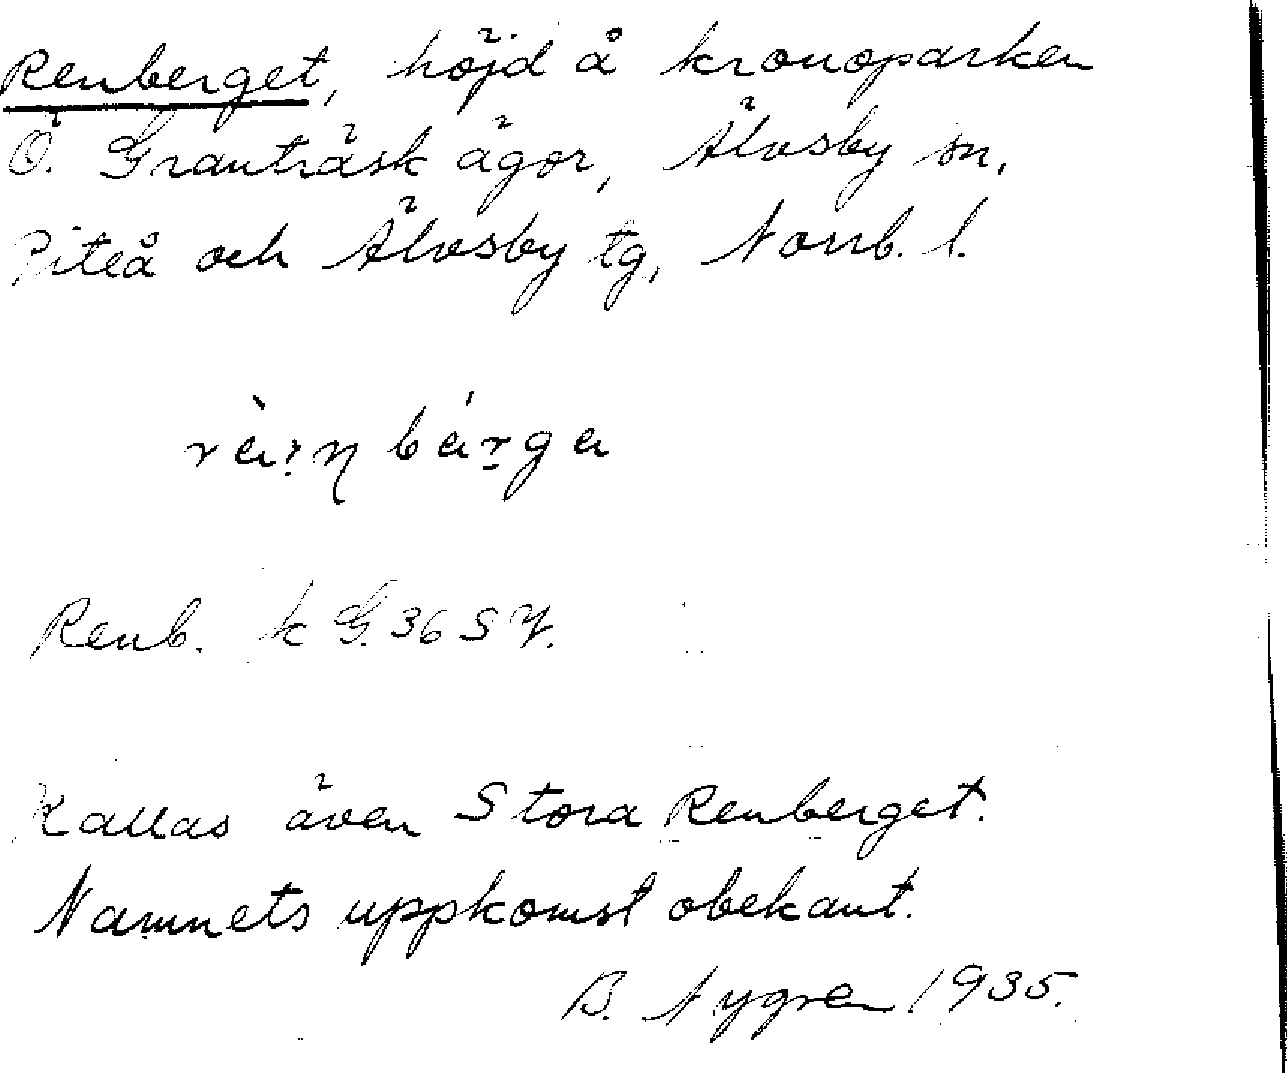 Renberget, höjd å kronoparken
Ö. Granträsk ägor, Älvsby sn,
Piteå och Älvsby tg, Norrb. l.
Renb. k G. 36 S Y.
Kallas även Stora Renberget.
Namnets uppkomst obekant.
B. Nygren 1935.